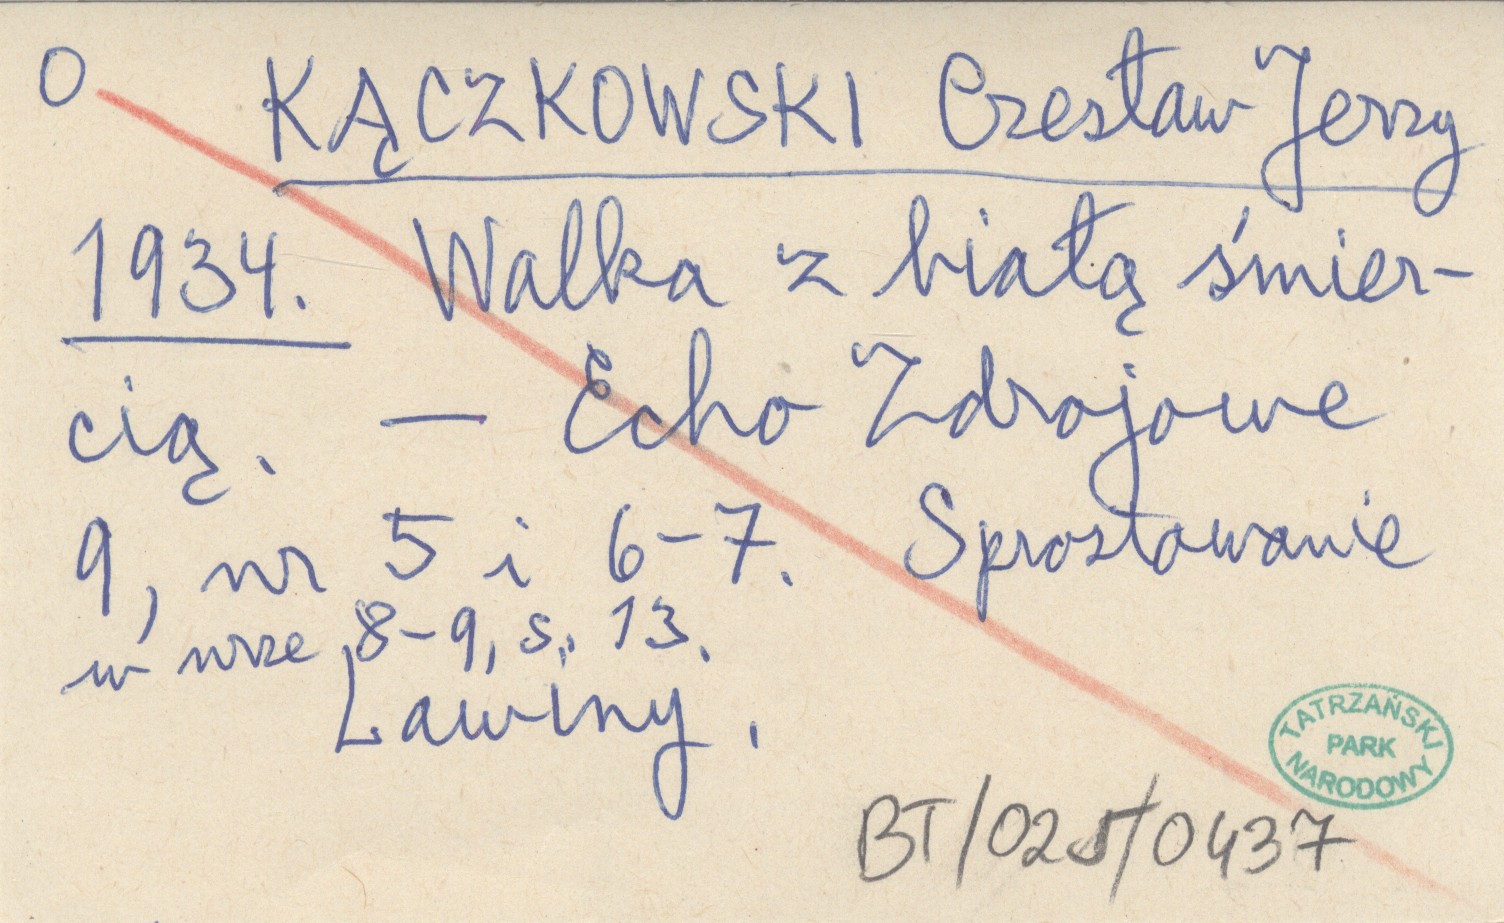 O KĄCZKOWSKI Czesław Jerzy
1934. Walka z białą śmier-
cią. — Echo Zdrojowe
9, nr 5 i 6-7. Sprostowanie
w nrze 8-9, s. 13.
Lawiny.
TATRZAŃSKI
PARK
NARODOWY
BT/025/0437